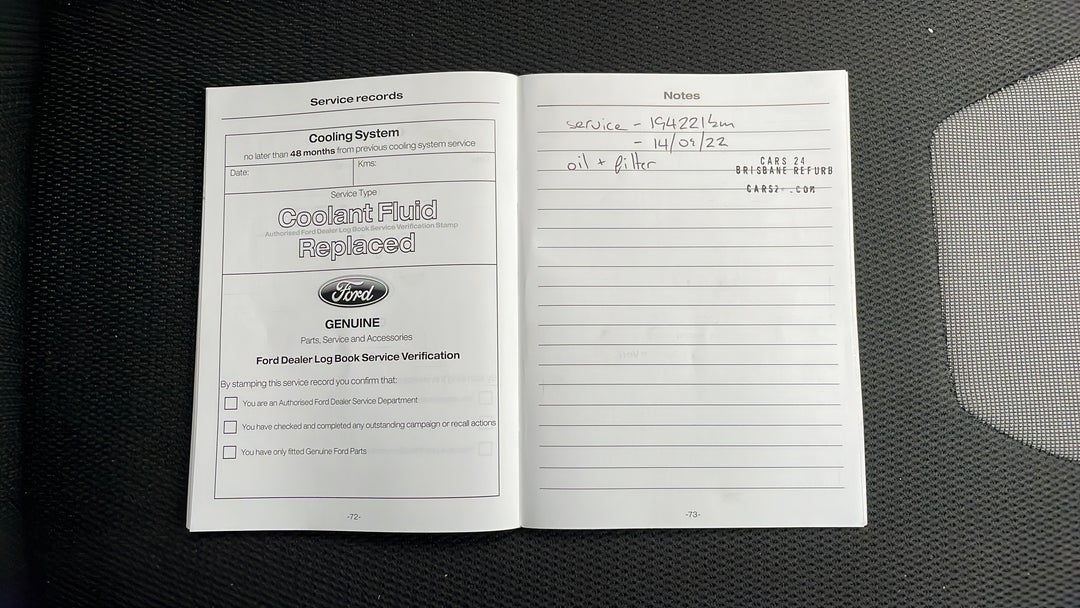 Service records
Cooling System
no later than 48 months from previous cooling system service
Date:
Kms:
Service Type
Coolant Fluid
Authorised Ford Dealer Log Book Service Verification Stamp
Replaced
Ford
GENUINE
Parts, Service and Accessories
Ford Dealer Log Book Service Verification
By stamping this service record you confirm that:
You are an Authorised Ford Dealer Service Department
You have checked and completed any outstanding campaign or recall actions
You have only fitted Genuine Ford Parts
-72-
Notes
service - 194221km
- 14/09/22
oil + filter
CARS 24
BRISBANE REFURB
-73-